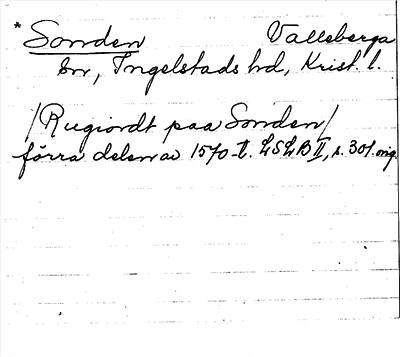 * Sonden Valleberga
sn, Ingelstads hd, Krist. l.
/Rugiordt paa Sonden/
förra delen av 1570-t. LSLB II, s. 301 orig.